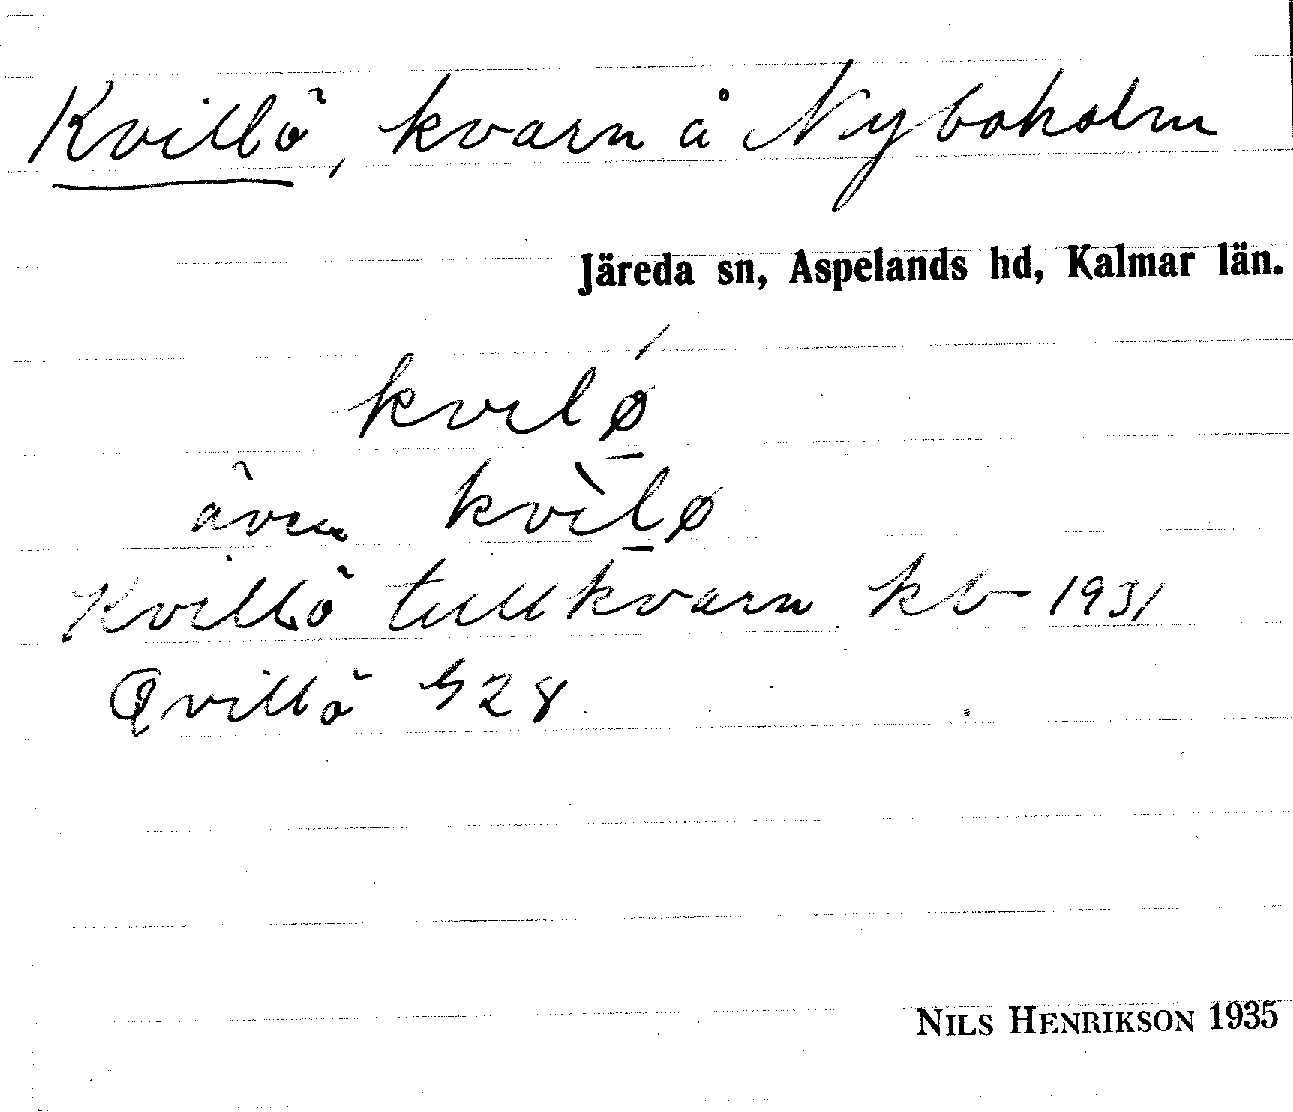 Kvillö, kvarn å Nyboholm
Järeda sn, Aspelands hd, Kalmar län.
kvilǿ
även kvìlø
Kvillö tullkvarn kb 1931
Qvillö G28
NILS HENRIKSON 1935